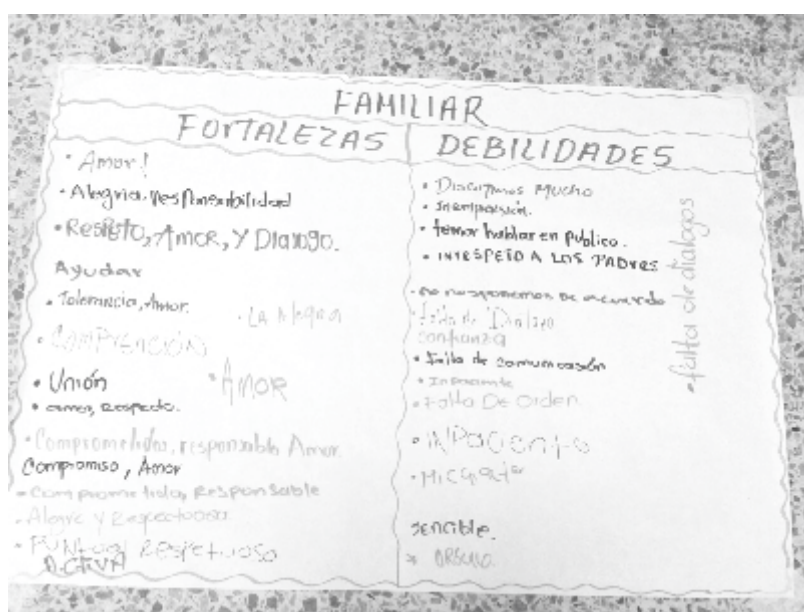 FAMILIAR
FORTALEZAS
• Amor!
• Alegria, responsabilidad
• Respeto, Amor, Y Dialogo.
Ayudar
• Tolerancia, Amor.
• LA Alegria
• COMPRENCIÓN
• Unión
• AMOR
• amor, Respeto.
• Comprometidos, responsable Amor.
Compromiso, Amor
• Comprometida, Responsable
• Alegre y Respectuosa
• PUNtual RESPETUOSO
ACTIVA
DEBILIDADES
• Discutimos Mucho
• temor hablar en publico.
• INRESPETO A LOS PADRES
• no nos ponemos De acuerdo
• falta de Dialogo
confianza
• Falla de comunicasión
• Inpaciente
• Falta De orden.
• INPaciente
sencible.
• falta de dialogos